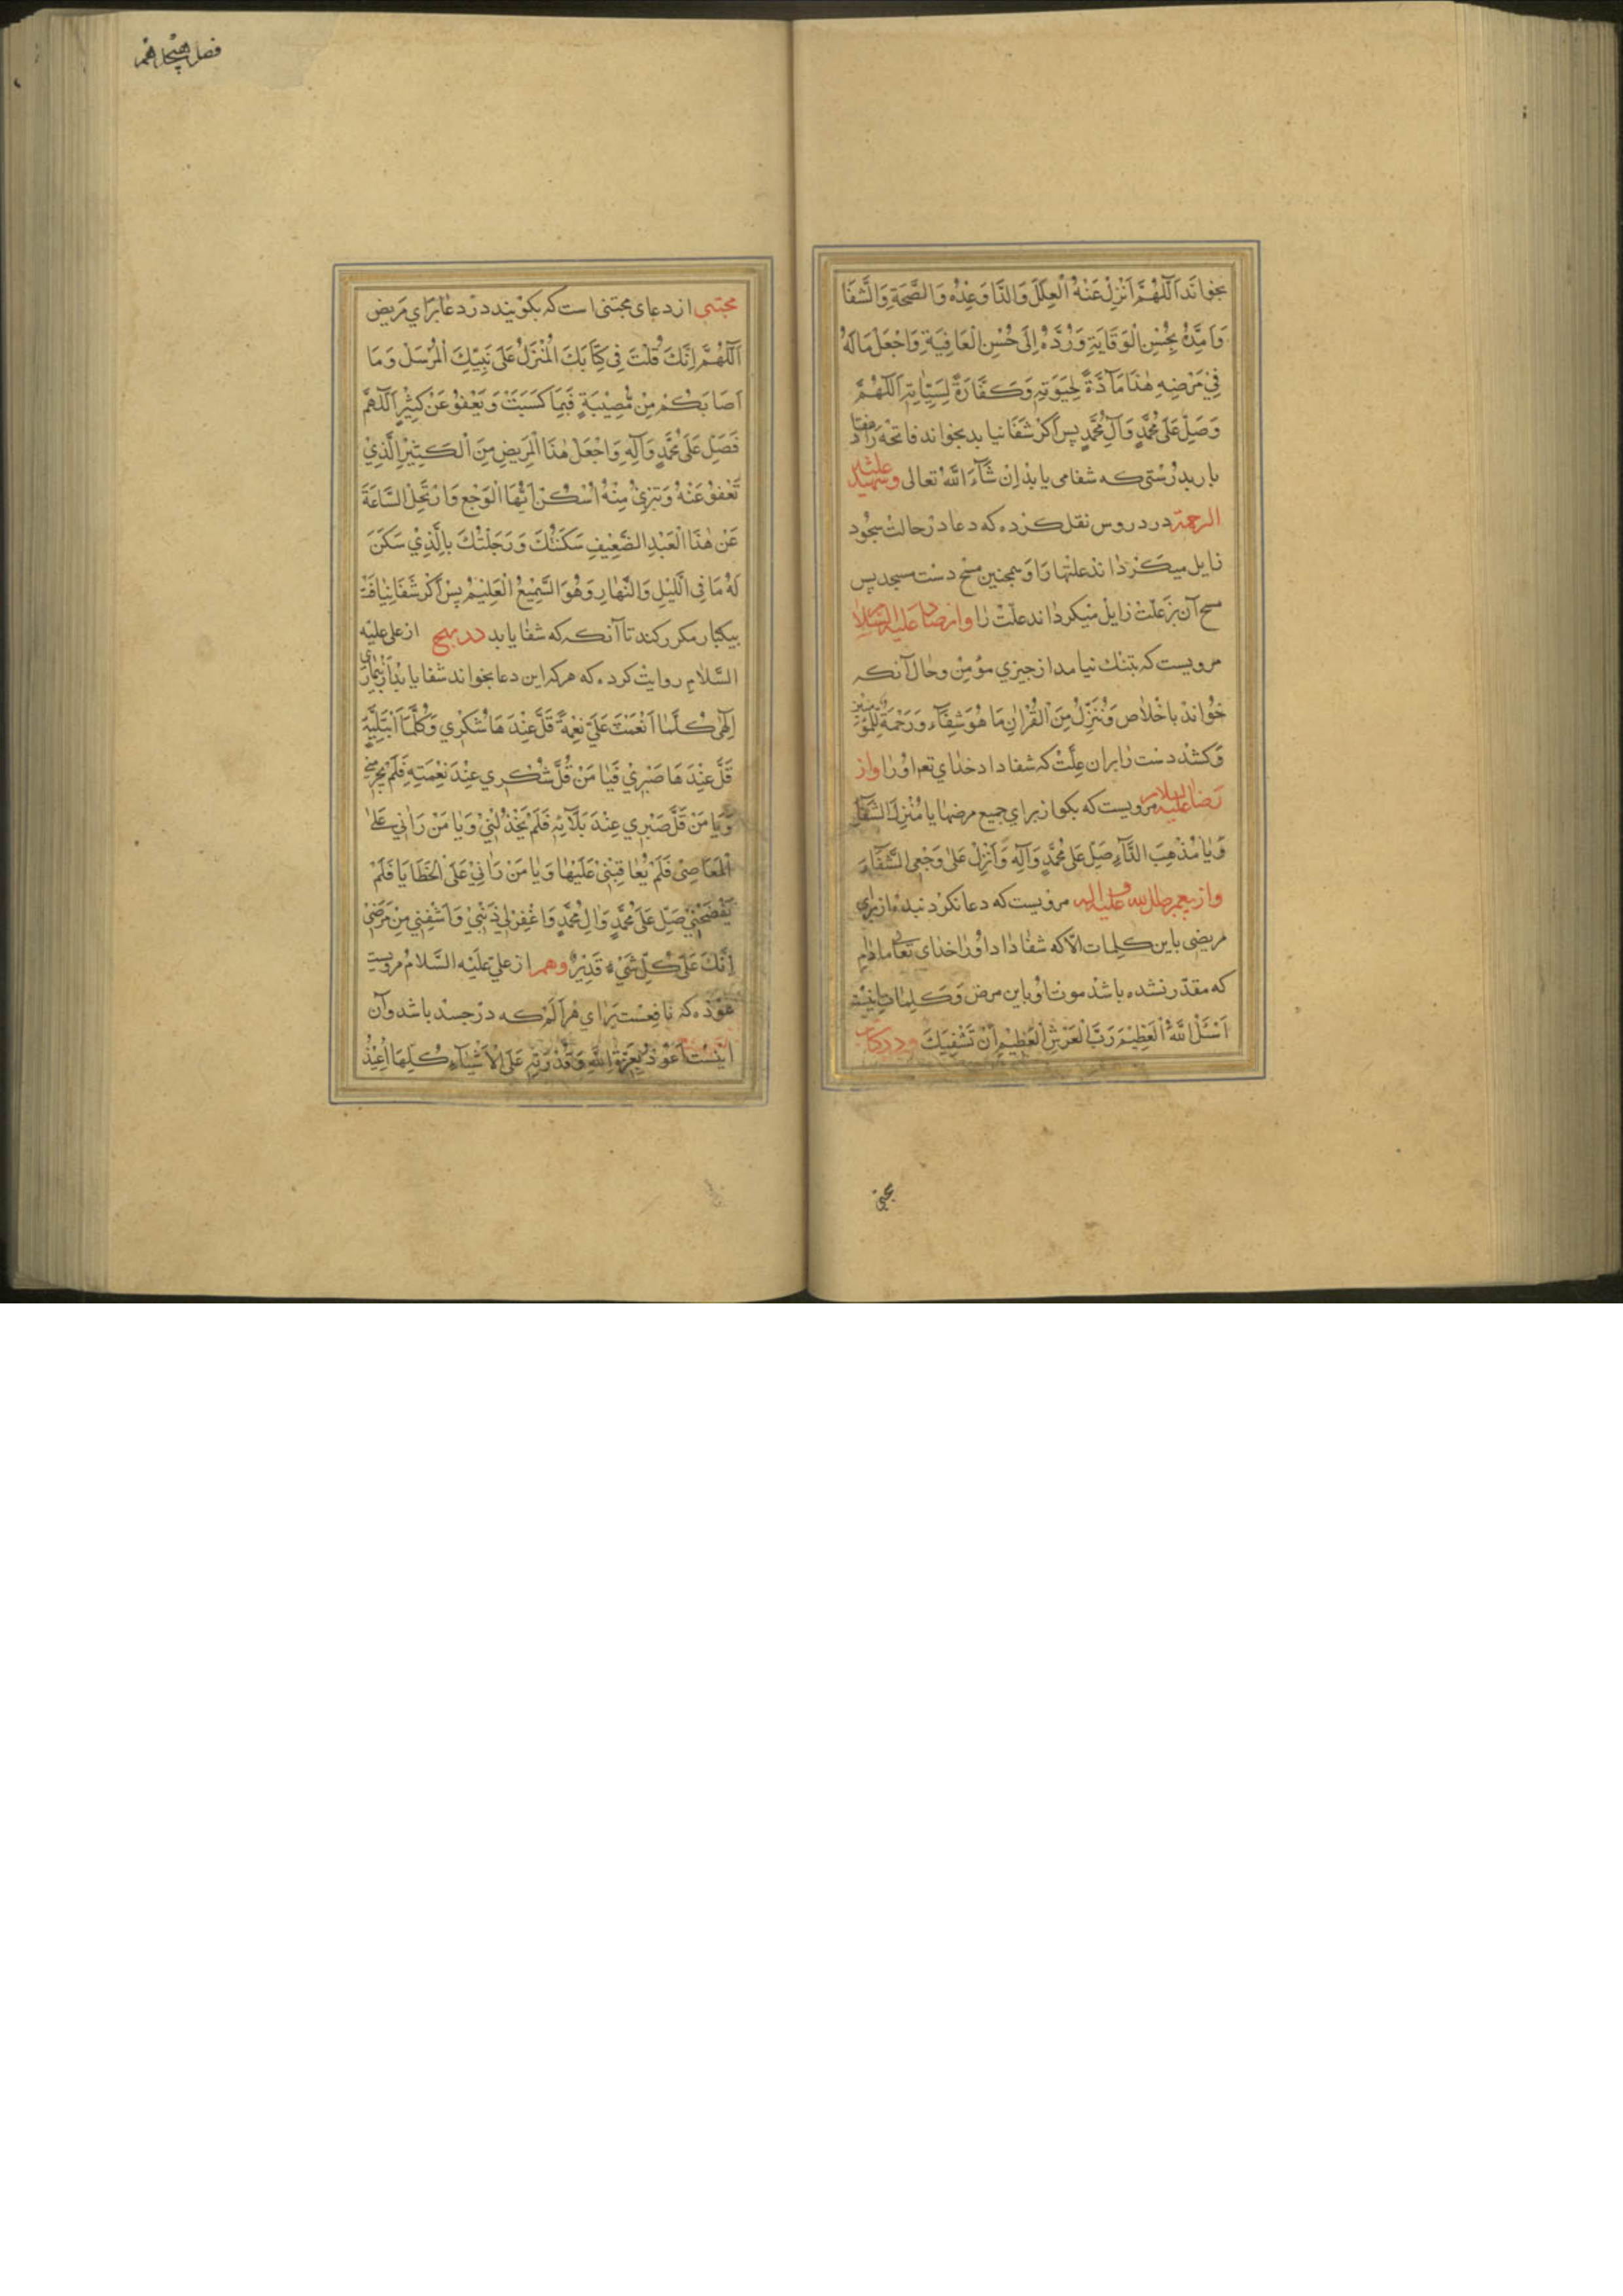 بخواند اَللّٰهُمَّ اَنْزِلْ عَنْهُ الْعِلَلَ وَالدَّا وَعِدْهُ وَالصِّحَةِ وَالشَّفَا
وَاَمِدَّهُ بِحُسْنِ الْوَقَايَةِ وَرُدَّهُ اِلَى حُسْنِ الْعَافِيَةِ وَاجْعَلْ مَالَهُ
فِيْ مَرَضِهِ هٰذَا مَآدَّةً لِحَيٰوتِهِ وَكَفَّارَةً لِسَيِّاٰتِهِ اَللّٰهُمَّ
وَصَلِّ عَلٰى مُحَمَّدٍ وَآلِ مُحَمَّدٍ پس اكر شفا نيابد بخواند فاتحه را هفتاد
بار بدرستى كه شفا مى يابد اِنْ شَآءَ اللّٰهُ تعالى وشهيد عليه
الرحمة در دروس نقل كرده كه دعا در حالت سجود
زايل ميكرداند علتها را وهمچنين مسح دست مسجد پس
مسح آن بر علت زايل ميكرداند علت را واز صادق عليه السلام
مرويست كه بتنك نيامد از چيزي مؤمن وحال آنكه
خواند باخلاص وَنُنَزِّلُ مِنَ الْقُرْاٰنِ مَا هُوَ شِفَآء وَرَحْمَة لِلْمُؤْمِنِيْنَ
وكشد دست را بران علت كه شفا داد خداي تعـ اورا واز
رضا عليه السلام مرويست كه بكو از براي جميع مرضها يا مُنْزِلَ الشِّفَآءِ
وَيَا مُذْهِبَ الدَّآءِ صَلِّ عَلٰى مُحَمَّدٍ وَآلِهِ وَاَنْزِلْ عَلٰى وَجْعِى الشِّفَآءَ
واز پيغمبر صلى الله عليه وآله مرويست كه دعا نكرد بنده از براى
مريضى باين كلمات الّا كه شفا داد اورا خداى تعالى مادام
كه مقدّر نشده باشد موت او باين مرض وكلمات اينست
اَسْئَلُ اللّٰهَ الْعَظِيْمَ رَبَّ الْعَرْشِ الْعَظِيْمِ اَنْ تَشْفِيَكَ ودر كتاب
مجتنى
فصل
مجتنى از دعاى مجتنى است كه بكويند در دعا براي مريض
اَللّٰهُمَّ اِنَّكَ قُلْتَ فِى كِتَابِكَ الْمُنْزَلُ عَلٰى نَبِيِّكَ الْمُرْسَل وَمَا
اَصَابَكُمْ مِنْ مُصِيْبَةٍ فَبِمَا كَسَبَتْ وَيَعْفُوْ عَنْ كَثِيْرٍ اَللّٰهُمَّ
فَصَلِّ عَلٰى مُحَمَّدٍ وَآلِهِ وَاجْعَلْ هٰذَا الْمَرِيْضِ مِنَ الْكَثِيْرِ الَّذِيْ
تَعْفُوْ عَنْهُ وَتَبْرِئُ مِنْهُ اُسْكُنْ اَيُّهَا الْوَجْعِ وَارْتَحِلْ السَّاعَةَ
عَنْ هٰذَا الْعَبْدِ الضَّعِيْفِ سَكَنْتُكَ وَرَحَلْتُكَ بِالَّذِيْ سَكَنَ
لَهُ مَا فِى الَّليْلِ وَالنَّهَارِ وَهُوَ السَّمِيْعُ الْعَلِيْمُ پس اكر شفا نيافت
بيكبار مكرر كند تا آنكه كه شفا يابد در مهج از على عليه
السّلام روايت كرده كه هركه اين دعا بخواند شفا يابد از بيمارى
اِلٰهِى كُلَّمَا اَنْعَمْتَ عَلَيَّ نِعْمَةً قَلَّ عِنْدَهَا شُكْرِي وَكُلَّمَا اَبْتَلَيْتَنِي
قَلَّ عِنْدَهَا صَبْرِيْ فَيَا مَنْ قَلَّ شُكْرِي عِنْدَ نِعْمَتِهِ فَلَمْ يَحْرِمْنِي
وَيَا مَنْ قَلَّ صَبْرِي عِنْدَ بَلَآئِهِ فَلَمْ يَخْذُلْنِيْ وَيَا مَنْ رَاٰنِي عَلٰى
الْمَعَاصِىْ فَلَمْ يُعَاقِبْنِىْ عَلَيْهَا وَيَا مَنْ رَاٰنِيْ عَلَى الْخَطَايَا فَلَمْ
يَفْضَحْنِيْ صَلِّ عَلٰى مُحَمَّدٍ وَاٰلِ مُحَمَّدٍ وَاغْفِرْ لِيْ ذَنْبِيْ وَاشْفِنِي مِنْ مَرَضِيْ
اِنَّكَ عَلٰى كُلِّ شَيْء قَدِيْرٌ وهم از علىّ عليه السّلام مرويست
عوذه كه نافعست براي هر الم كه در جسد باشد وآن
اينست اَعُوْذُ بِعِزَّةِ اللّٰهِ وَقُدْرَتِهِ عَلَى الْاَشْيَآءِ كُلِّهَا اُعِيْذُ